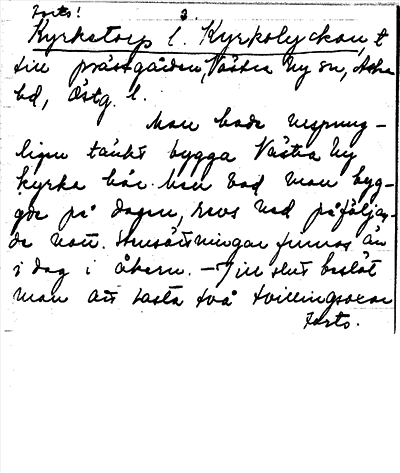 Forts! 3.
Kyrketorp l. Kyrkolyckan, t
till prästgården, Västra Ny sn, Aska
hd, Östg. l.
Man hade ursprung-
ligen tänkt bygga Västra Ny
kyrka här. Men vad man byg-
gde på dagen, revs ned påföljan-
de natt. Stensättningar finnas än
i dag i åkern. - Till slut beslöt
man att tasta två tvillingsoxar
Forts.